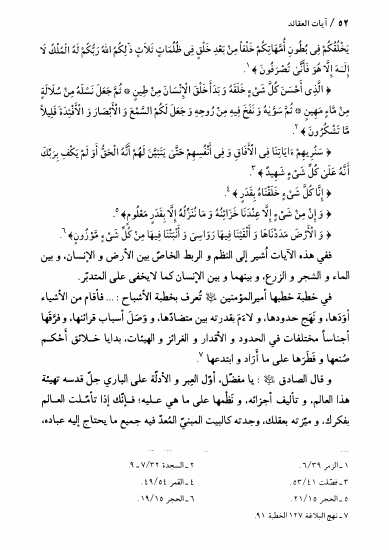 ٥٢ / آيات العقائد
يَخْلُقُكُمْ فِى بُطُونِ أُمَّهَاتِكُمْ خَلْقاً مِنْ بَعْدِ خَلْقٍ فِى ظُلُمَاتٍ ثَلَاثٍ ذٰلِكُمُ اللهُ رَبُّكُمْ لَهُ الْمُلْكُ لَا
إِلٰـهَ إِلَّا هُوَ فَأَنَّىٰ تُصْرَفُونَ ﴾ ١.
﴿ الَّذِي أَحْسَنَ كُلَّ شَىْءٍ خَلَقَهُ وَ بَدَأَ خَلْقَ الْإِنسَانِ مِنْ طِينٍ * ثُمَّ جَعَلَ نَسْلَهُ مِنْ سُلَالَةٍ
مِنْ مَاءٍ مَهِينٍ * ثُمَّ سَوَّيٰهُ وَ نَفَخَ فِيهِ مِنْ رُوحِهِ وَ جَعَلَ لَكُمُ السَّمْعَ وَ الْأَبْصَارَ وَ الْأَفْئِدَةَ قَلِيلاً
مَّا تَشْكُرُونَ ﴾ ٢.
﴿ سَنُرِيهِمْ ءَايَاتِنَا فِى الْأَفَاقِ وَ فِى أَنْفُسِهِمْ حَتَّىٰ يَتَبَيَّنَ لَهُمْ أَنَّهُ الْحَقُّ أَوَ لَمْ يَكْفِ بِرَبِّكَ
أَنَّهُ عَلَىٰ كُلِّ شَىْءٍ شَهِيدٌ ﴾ ٣.
﴿ إِنَّا كُلَّ شَىْءٍ خَلَقْنَاهُ بِقَدَرٍ ﴾ ٤.
﴿ وَ إِنْ مِنْ شَىْءٍ إِلَّا عِنْدَنَا خَزَائِنُهُ وَ مَا نُنَزِّلُهُ إِلَّا بِقَدَرٍ مَعْلُومٍ ﴾ ٥.
﴿ وَ الْأَرْضَ مَدَدْنَاهَا وَ أَلْقَيْنَا فِيهَا رَوَاسِىَ وَ أَنْبَتْنَا فِيهَا مِنْ كُلِّ شَىْءٍ مَّوْزُونٍ ﴾ ٦.
ففي هذه الآيات أُشير إلى النظم و الربط الخاصّ بين الأرض و الإنسان، و بين
الماء و الشجر و الزرع، و بينهما و بين الإنسان كما لايخفى على المتدبّر.
في خطبة خطبها أميرالمؤمنين ﷺ تُعرف بخطبة الأشباح : ... فأقام من الأشياء
أوَدَها، و نَهَج حدودها، و لاءَمَ بقدرته بين متضادّها، و وَصَلَ أسباب قرائنها، و فرَّقها
أجناساً مختلفات في الحدود و الأقدار و الغرائز و الهيئات، بدايا خلائق أحْكم
صُنعها و فَطَرَها على ما أرَاد و ابتدعها ٧.
و قال الصادق ﷺ : يا مفضّل، أوّل العِبر و الأدلّة على الباري جلّ قدسه تهيئة
هذا العالم، و تأليف أجزائه، و نَظْمها على ما هي عليه؛ فـإنّك إذا تأمّـلت العـالم
بفكرك، و ميّزته بعقلك، وجدته كالبيت المبنيّ المُعدّ فيه جميع ما يحتاج إليه عباده،
١ ـ الزمر ٦/٣٩. ٢ ـ السجدة ٧/٣٢ ـ ٩.
٣ ـ فصّلت ٥٣/٤١. ٤ ـ القمر ٤٩/٥٤.
٥ ـ الحجر ٢١/١٥. ٦ ـ الحجر ١٩/١٥.
٧ ـ نهج البلاغة ١٢٧ الخطبة ٩١.